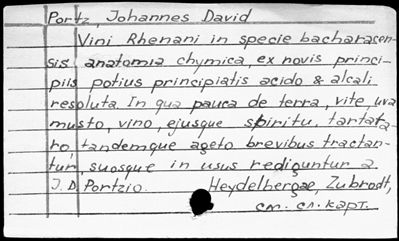 Portz, Johannes David
Vini Rhenani in specie bacharacen-
sis anatomia chymica, ex novis princi-
piis potius principiatis acido & alcali
resoluta. In qua pauca de terra, vite, uva
musto, vino, ejusque spiritu, tartata-
ro, tandemque ageto brevibus tractan-
tur, suosque in usus rediguntur a
J. D. Portzio. Heydelbergae, Zubrodt,
см. сл. карт.